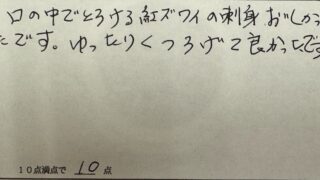 口の中でとろける紅ズワイの刺身おいしかっ
たです。ゆったりくつろげて良かったです
10点満点で 10 点